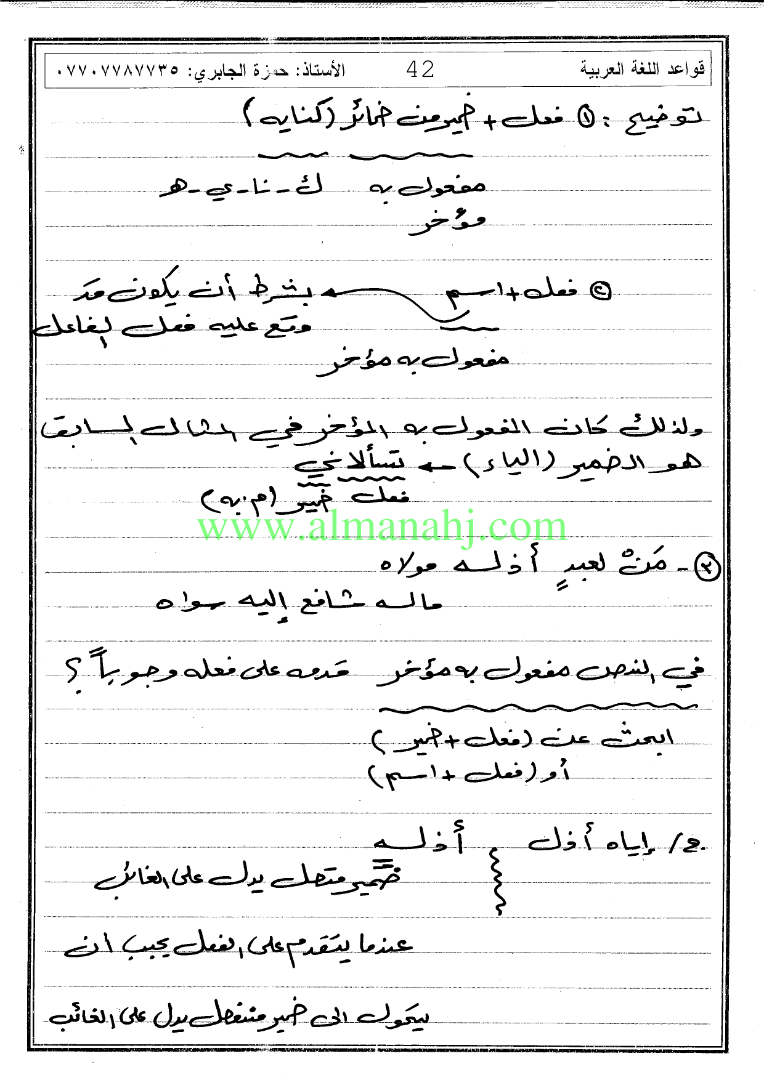 قواعد اللغة العربية 42 الأستاذ: حمزة الجابري: ٠٧٧٠٧٧٨٧٧٣٥
توضيح : ① فعل + ضمير من ضمائر (كنايه)
مفعول به ك - نا - ي - هـ
مؤخر
② فعل + اسم ← بشرط أن يكون قد
وقع عليه فعل الفاعل
مفعول به مؤخر
ولذلك كان المفعول به المؤخر في المثال السابق
هو الضمير (الياء) ← تسألاني
فعل ضمير (م. به)
www.almanahj.com
③ - مَنْ لعبدٍ أذله مولاه
ماله شافع إليه سواه
في النص مفعول به مؤخر قدمه على فعله وجوباً ؟
ابحث عن (فعل + ضمير)
أو (فعل + اسم)
ج/ إياه أذل أذله
ضمير متصل يدل على الغائب
عندما يتقدم على الفعل يجب ان
يتحول الى ضمير منفصل يدل على الغائب